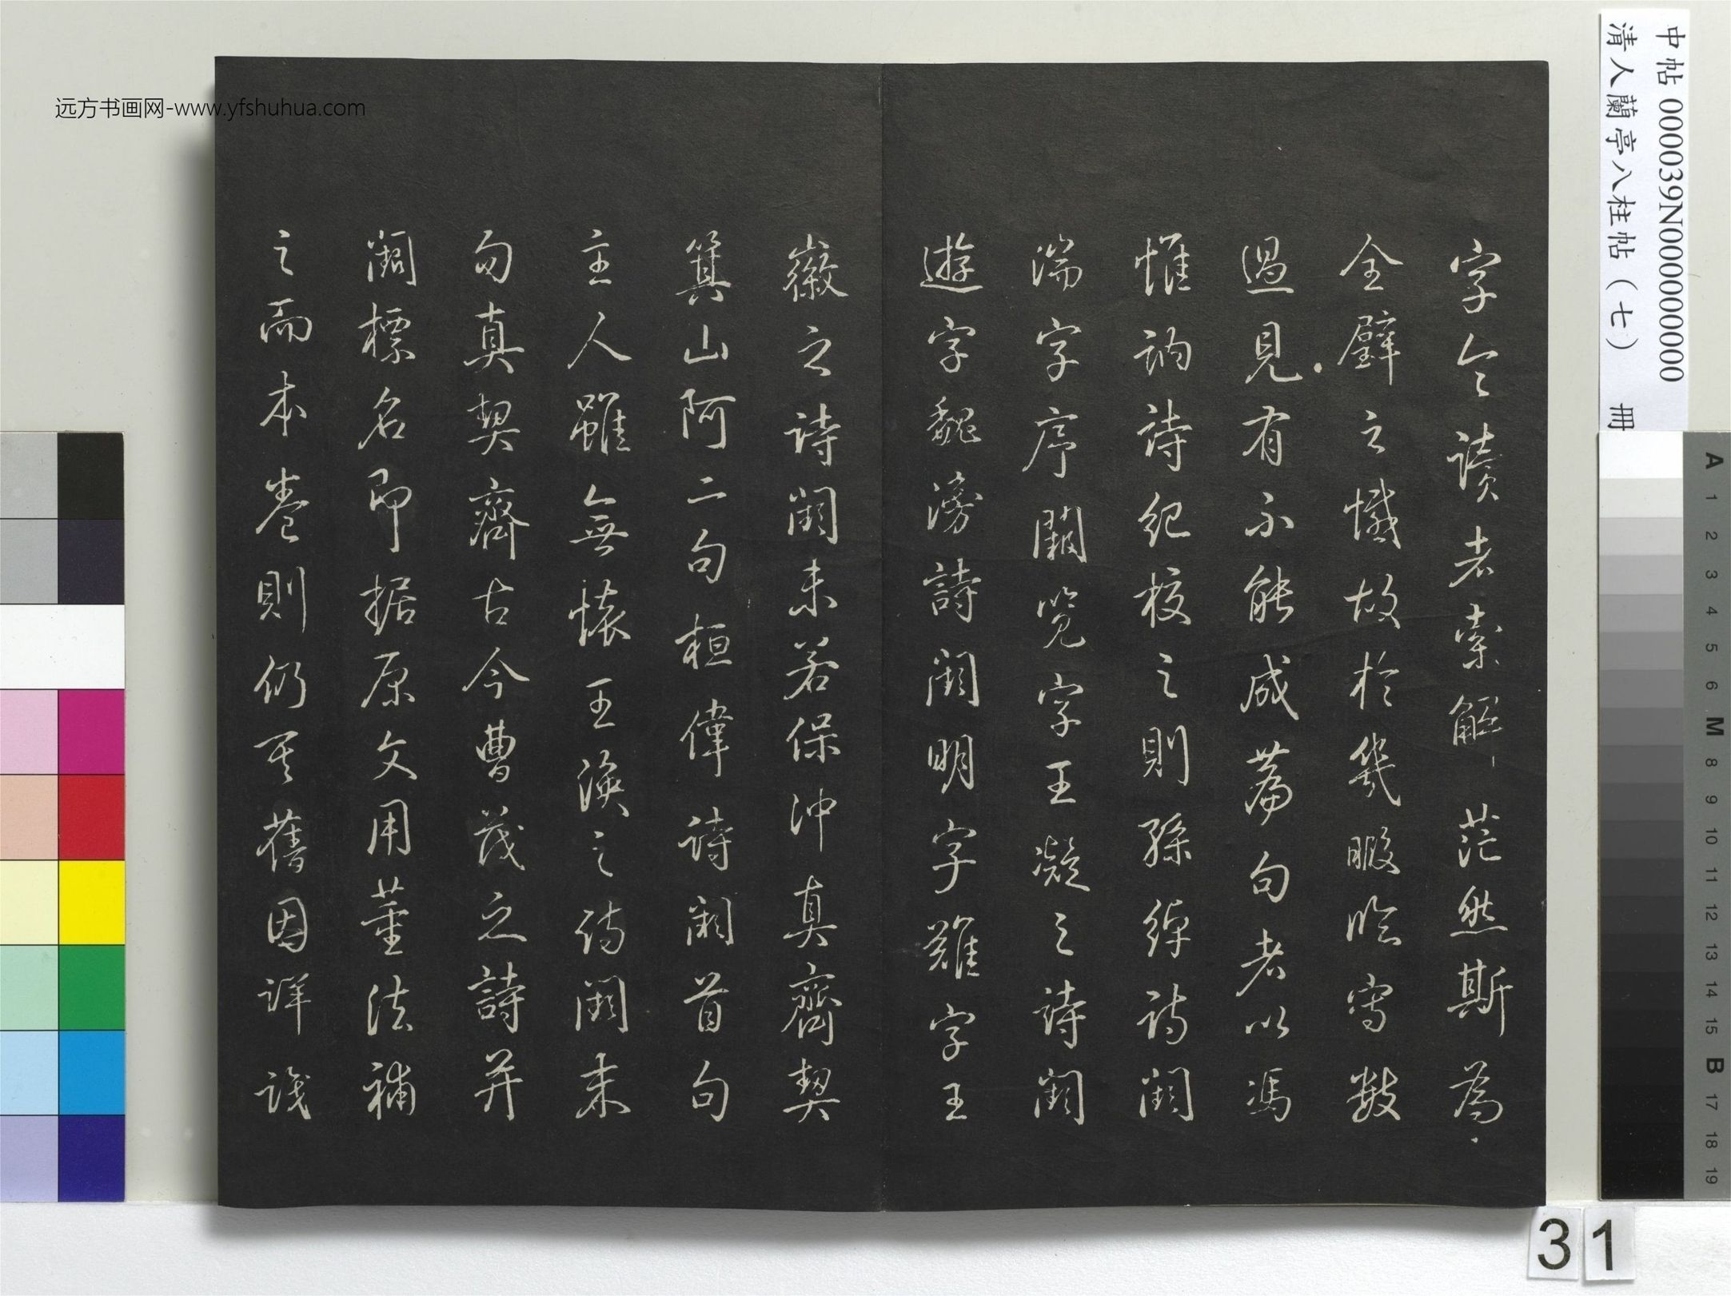 远方书画网-www.yfshuhua.com
中帖 000039N000000000
清人蘭亭八柱帖（七） 冊
字令讀者索解茫然斯為
全璧之憾故於幾暇臨寫數
過見有不能成篇句者以馮
惟訥詩紀校之則孫綽詩闕
湍字序闕覽字王凝之詩闕
遊字魏滂詩闕明字難字王
徽之詩闕未若保沖真齊契
箕山阿二句桓偉詩闕首句
主人雖無懷王渙之詩闕末
句真契齊古今曹茂之詩并
闕標名即据原文用董法補
之而本卷則仍其舊因詳識
A 1 2 3 4 5 6 M 8 9 10 11 12 13 14 15 B 17 18 19
31